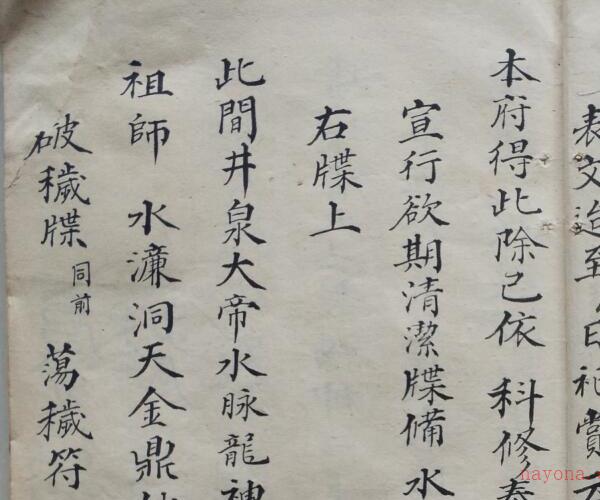 表文造至
本府得此除已依 科修奏
宣行欲期清潔牒備水
右牒上
此間井泉大帝水脉龍神
祖師 水濂洞天金鼎
破穢牒 同前 蕩穢符
nayona